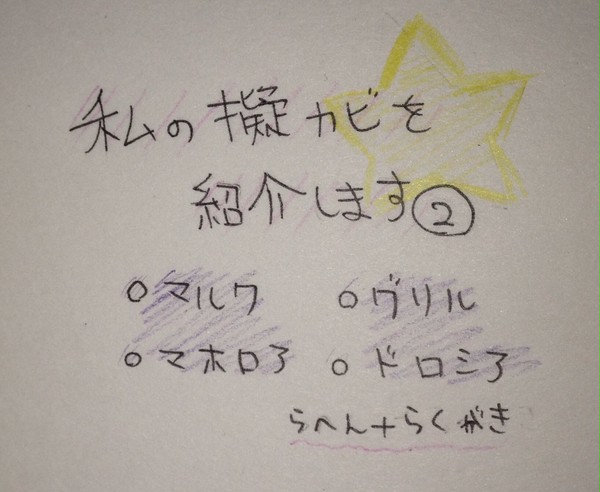 私の擬カビを
紹介します②
○マルク ○グリル
○マホロア ○ドロシア
らへん+らくがき